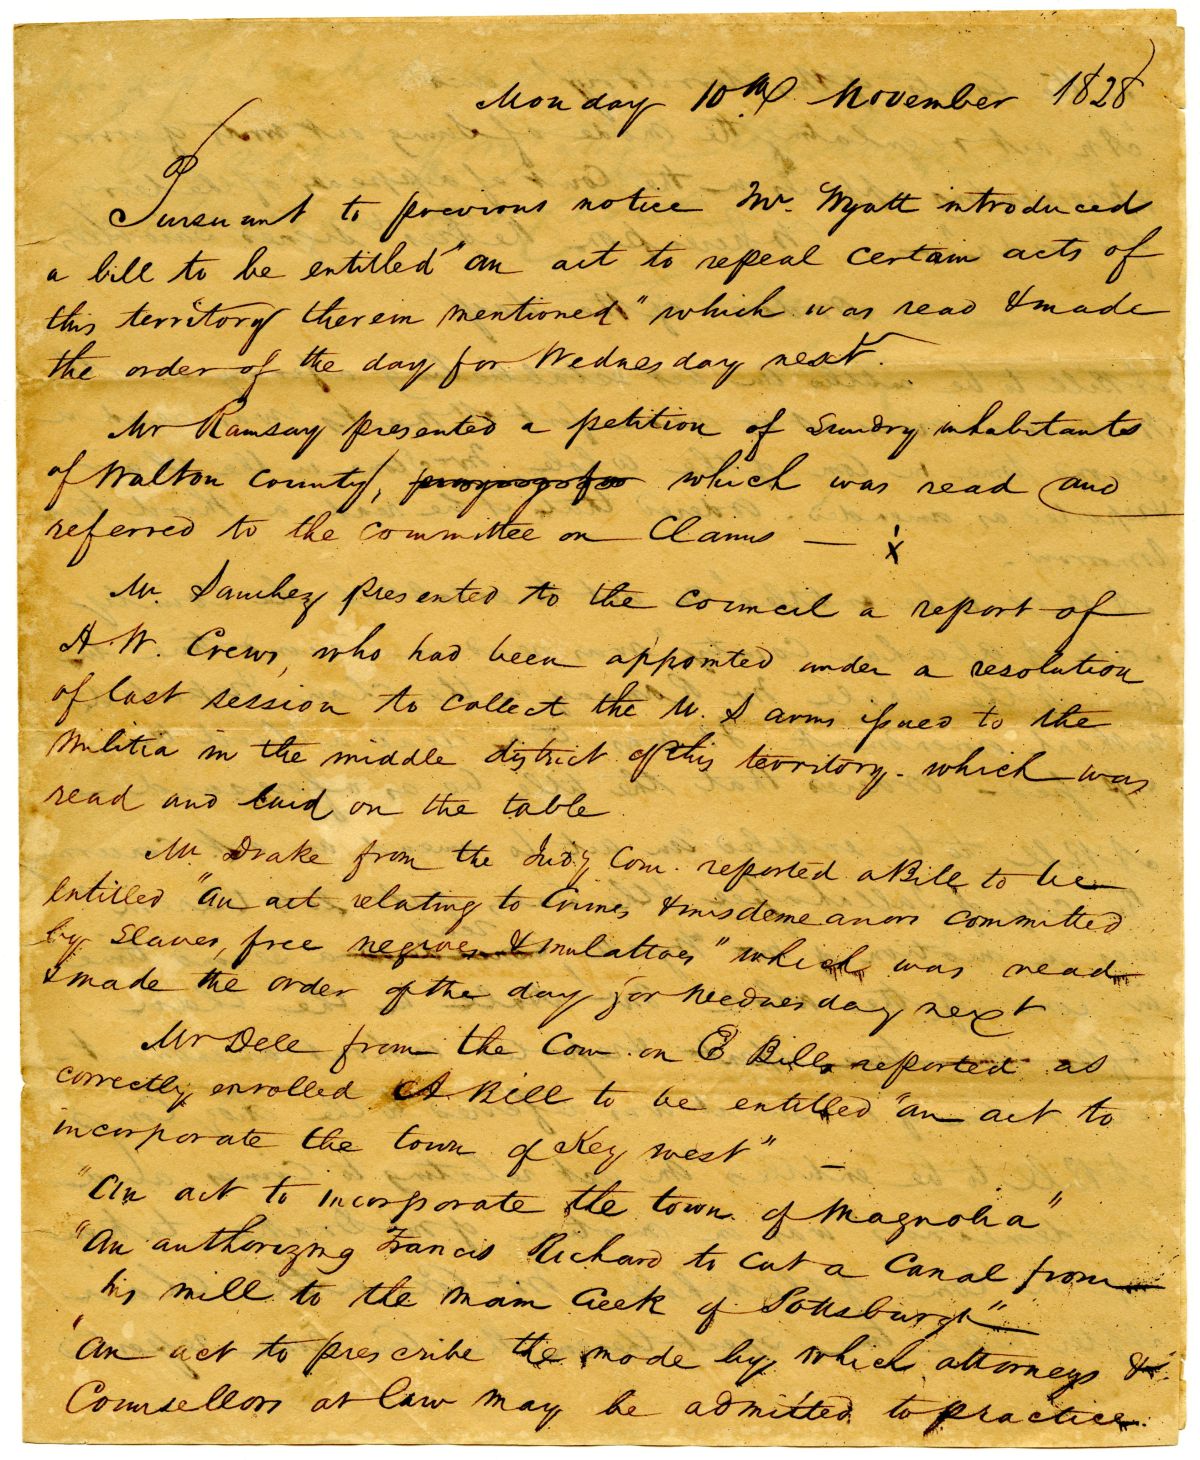 Monday 10th November 1828
Pursuant to previous notice Mr. Wyatt introduced
a bill to be entitled "an act to repeal certain acts of
this territory therein mentioned" which was read & made
the order of the day for Wednesday next.
Mr Ramsay presented a petition of Sundry inhabitants
of Walton County, which was read and
referred to the committee on Claims — x
Mr. Sanchez presented to the council a report of
A. W. Crews, who had been appointed under a resolution
of last session to collect the U. S arms issued to the
Militia in the middle district of this territory - which was
read and laid on the table
Mr Drake from the Judy Com. reported a Bill to be
entitled "an act relating to Crimes & misdemeanors committed
by Slaves, free negroes & mulattoes" which was read
& made the order of the day for Wednesday next
Mr Dell from the Com. on E Bills reported as
correctly enrolled A Bill to be entitled "an act to
incorporate the town of Key west" —
"An act to incorporate the town of Magnolia"
"An authorizing Francis Richard to cut a Canal from
his mill to the main Ceek of Pottsburgh"
"An act to prescribe the mode by which attorneys &
Counsellors at law may be admitted to practice.